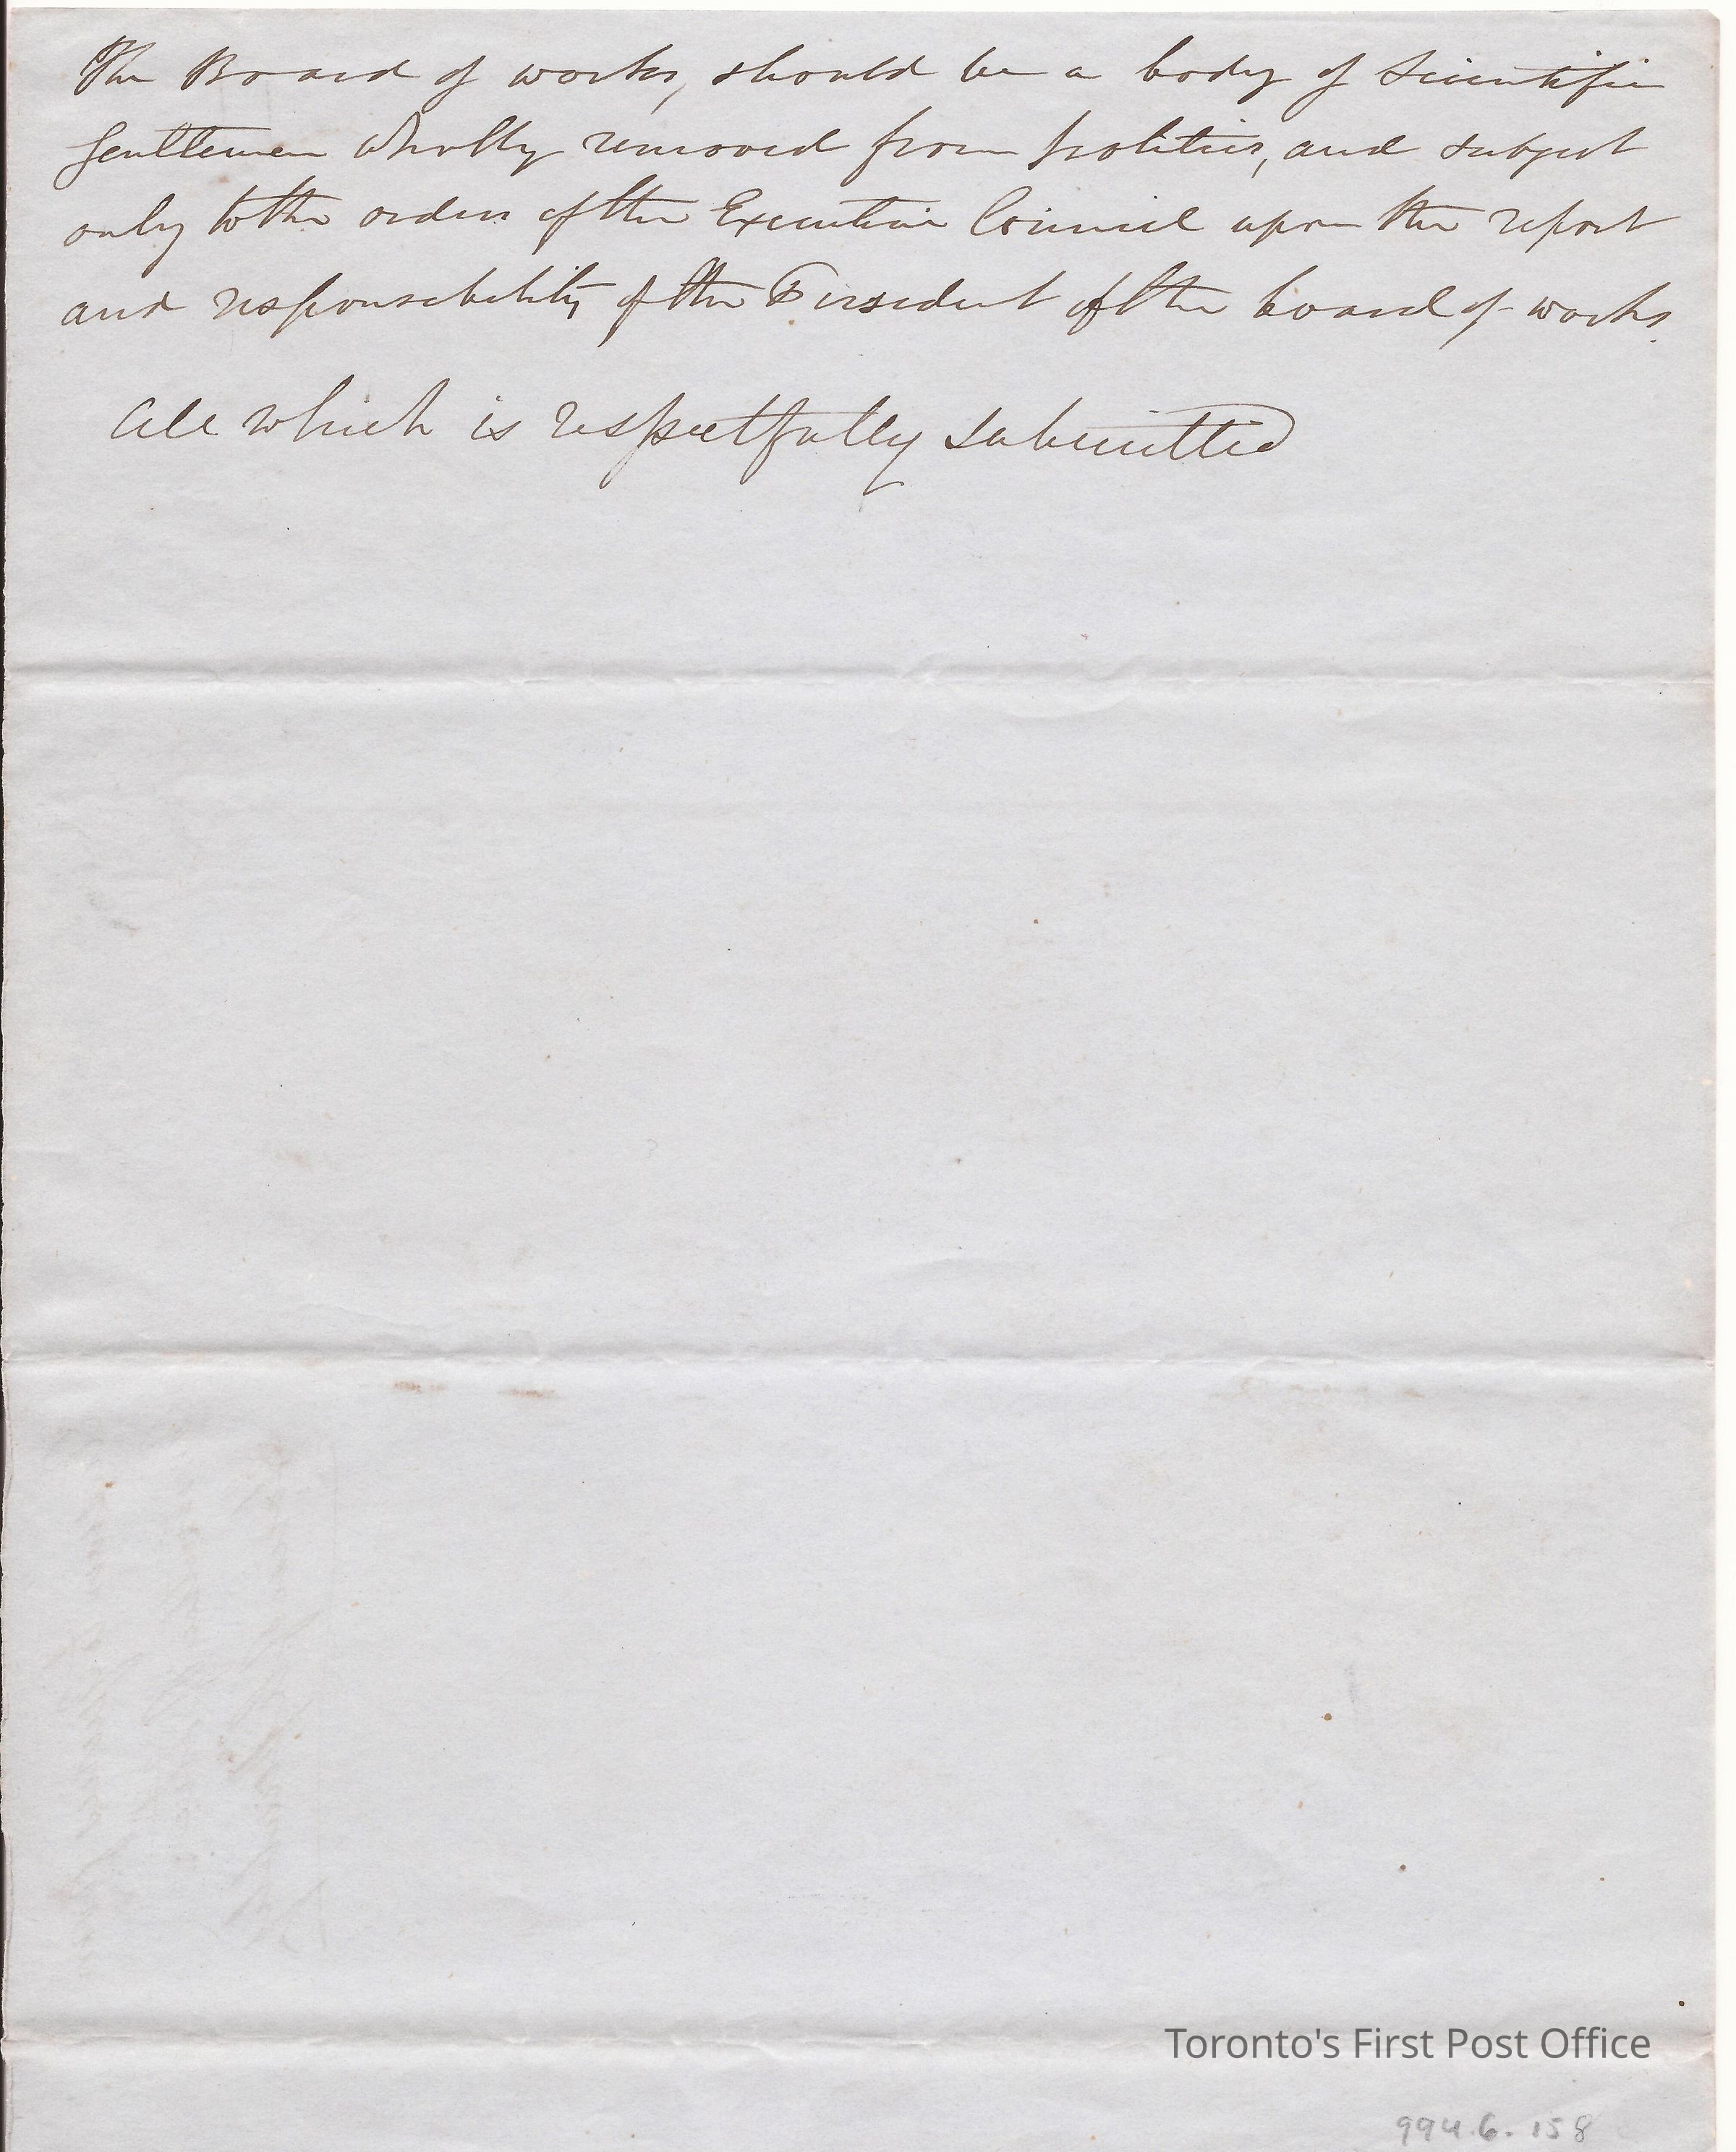 The Board of works, should be a body of Scientific
Gentlemen wholly removed from politics, and subject
only to the orders of the Executive Council upon the report
and responsibility of the President of the board of works.
All which is respectfully submitted
Toronto's First Post Office
994.6.158